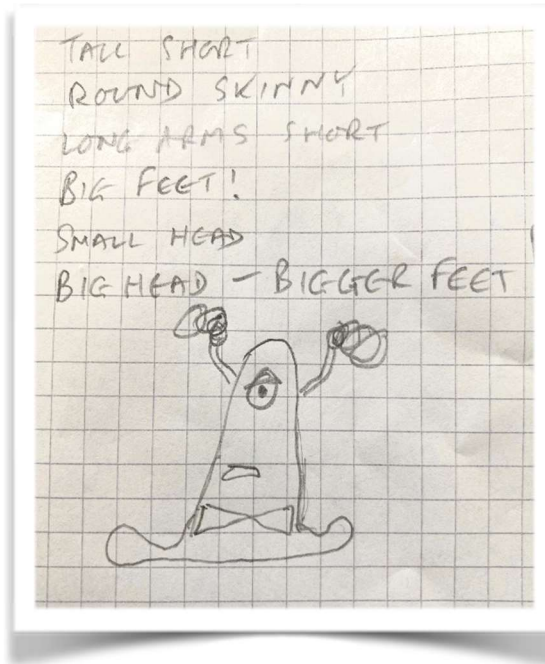 TALL SHORT
ROUND SKINNY
LONG ARMS SHORT
BIG FEET!
SMALL HEAD
BIG HEAD - BIGGER FEET